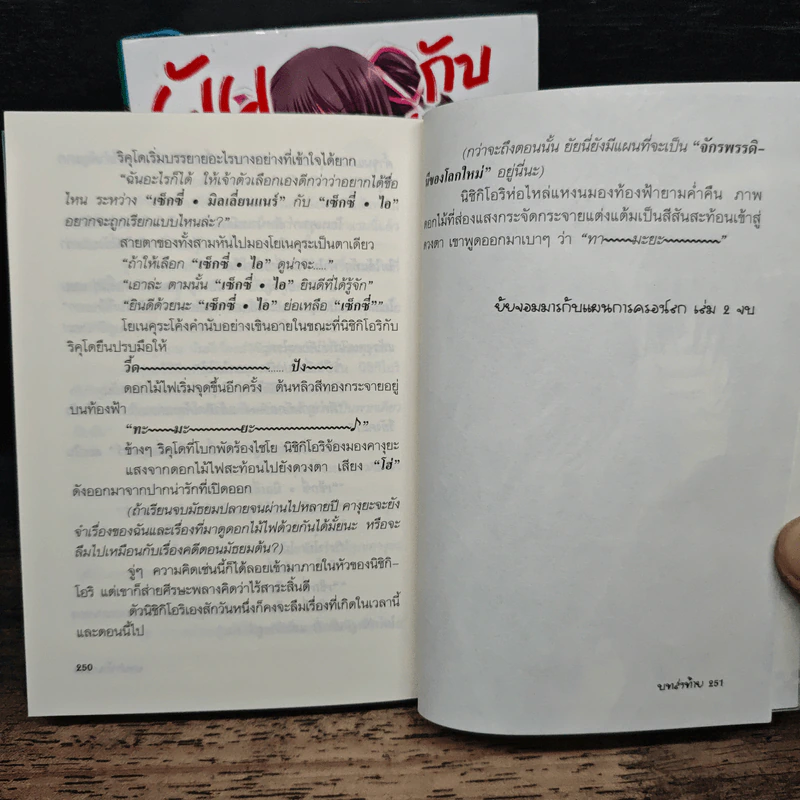 กับ
ริคุโดเริ่มบรรยายอะไรบางอย่างที่เข้าใจได้ยาก
“ฉันอะไรก็ได้ ให้เจ้าตัวเลือกเองดีกว่าว่าอยากได้ชื่อ
ไหน ระหว่าง “เซ็กซี่ • มิลเลี่ยนแนร์” กับ “เซ็กซี่ • ไอ”
อยากจะถูกเรียกแบบไหนล่ะ?”
สายตาของทั้งสามหันไปมองโยเนคุระเป็นตาเดียว
“ถ้าให้เลือก “เซ็กซี่ • ไอ” ดูน่าจะ.....”
“เอาล่ะ ตามนั้น “เซ็กซี่ • ไอ” ยินดีที่ได้รู้จัก”
“ยินดีด้วยนะ “เซ็กซี่ • ไอ” ย่อเหลือ “เซ็กซี่””
โยเนคุระโค้งคำนับอย่างเขินอายในขณะที่นิชิกิโอริกับ
ริคุโดยืนปรบมือให้
วี้ด~~~~~~~~~~~~~~~..... ปัง~~~~
ดอกไม้ไฟเริ่มจุดขึ้นอีกครั้ง ต้นหลิวสีทองกระจายอยู่
บนท้องฟ้า
“ทะ~~~~มะ~~~~~~ยะ~~~~~~~~~~~♪”
ข้างๆ ริคุโดที่โบกพัดร้องไชโย นิชิกิโอริจ้องมองคางุยะ
แสงจากดอกไม้ไฟสะท้อนไปยังดวงตา เสียง “โฮ่”
ดังออกมาจากปากน่ารักที่เปิดออก
(ถ้าเรียนจบมัธยมปลายจนผ่านไปหลายปี คางุยะจะยัง
จำเรื่องของฉันและเรื่องที่มาดูดอกไม้ไฟด้วยกันได้มั้ยนะ หรือจะ
ลืมไปเหมือนกับเรื่องคดีตอนมัธยมต้น?)
จู่ๆ ความคิดเช่นนี้ก็ได้ลอยเข้ามาภายในหัวของนิชิกิ-
โอริ แต่เขาก็ส่ายศีรษะพลางคิดว่าไร้สาระสิ้นดี
ตัวนิชิกิโอริเองสักวันหนึ่งก็คงจะลืมเรื่องที่เกิดในเวลานี้
และตอนนี้ไป
250
(กว่าจะถึงตอนนั้น ยัยนี่ยังมีแผนที่จะเป็น “จักรพรรดิ-
นีของโลกใหม่” อยู่นี่นะ)
นิชิกิโอริห่อไหล่แหงนมองท้องฟ้ายามค่ำคืน ภาพ
ดอกไม้ที่ส่องแสงกระจัดกระจายแต่งแต้มเป็นสีสันสะท้อนเข้าสู่
ดวงตา เขาพูดออกมาเบาๆ ว่า “ทา~~~~มะยะ~~~~~~~”
ยัยจอมมารกับแผนการครองโลก เล่ม 2 จบ
บทส่งท้าย 251